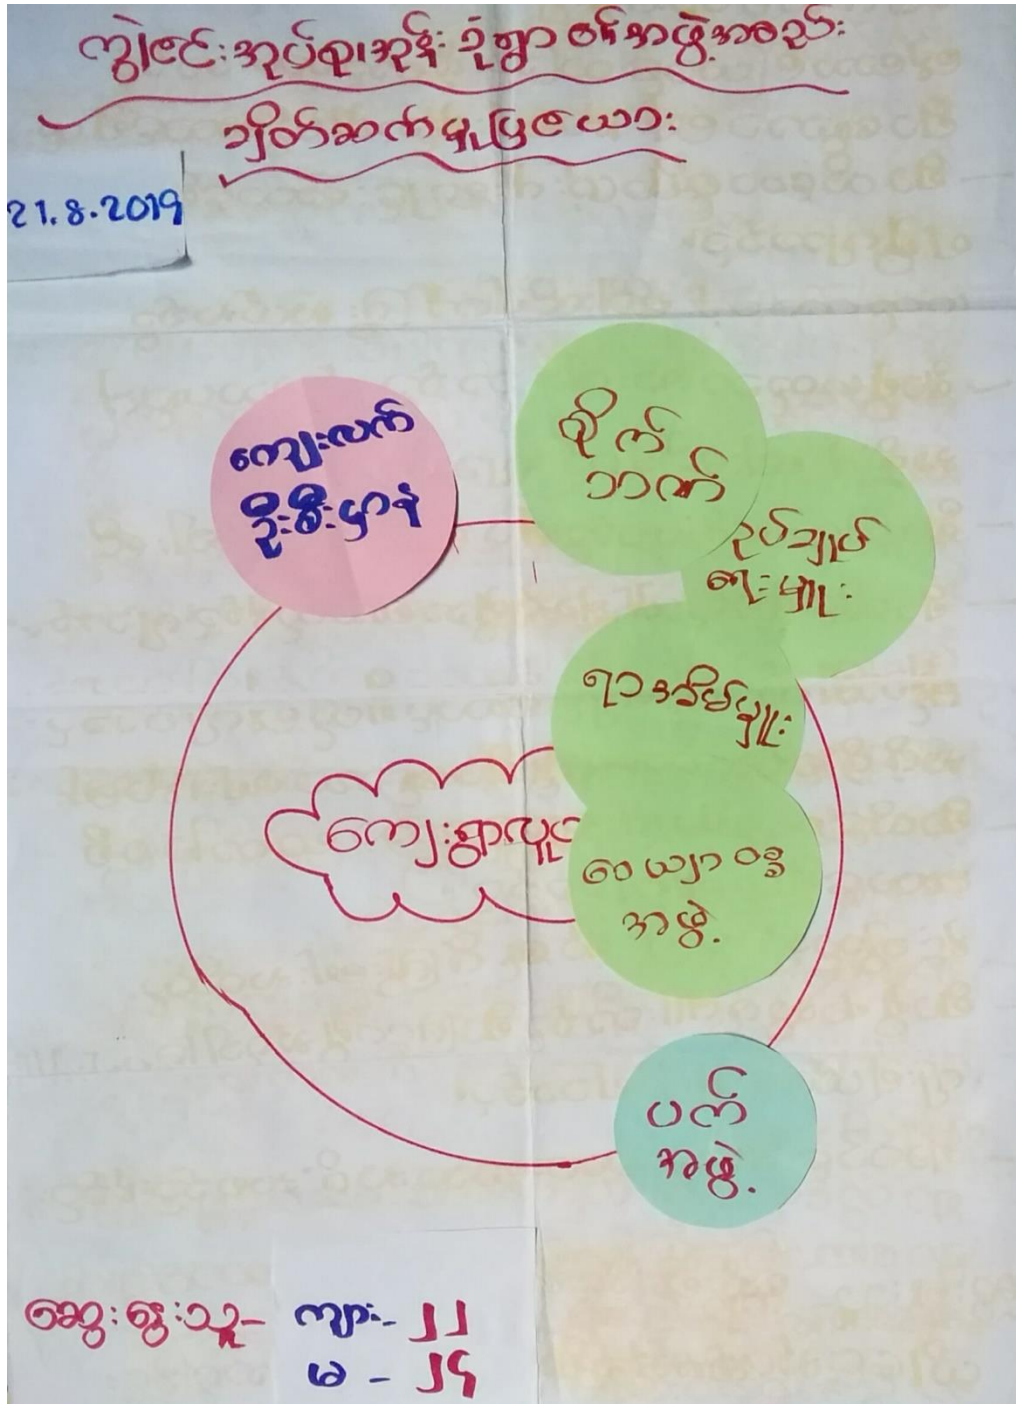 ကျွဲစင်းအုပ်စု၊အုန်းခုံရွာ ၏အဖွဲ့အစည်း
ချိတ်ဆက်မှုပြဇယား
21.8.2019
ကျေးလက်
ဦးစီးဌာန
စိုက်
ဘဏ်
အုပ်ချုပ်
ရေးမှူး
ရာအိမ်မှူး
ကျေးရွာလူ
ဝေယျာဝစ္စ
အဖွဲ့
ပက်
အဖွဲ့
ဆွေးနွေးသူ- ကျား - ၂၂
မ - ၂၄